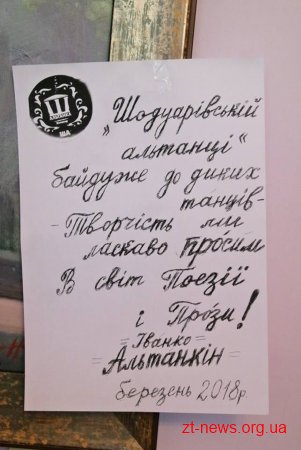 ША
„Шодуарівській
альтанці"
байдуже до диких
танців-
- Творчість ми
ласкаво просим
В світ Поезії
і Прози!
= Іванко =
= Альтанкін =
березень 2018р.
zt-news.org.ua